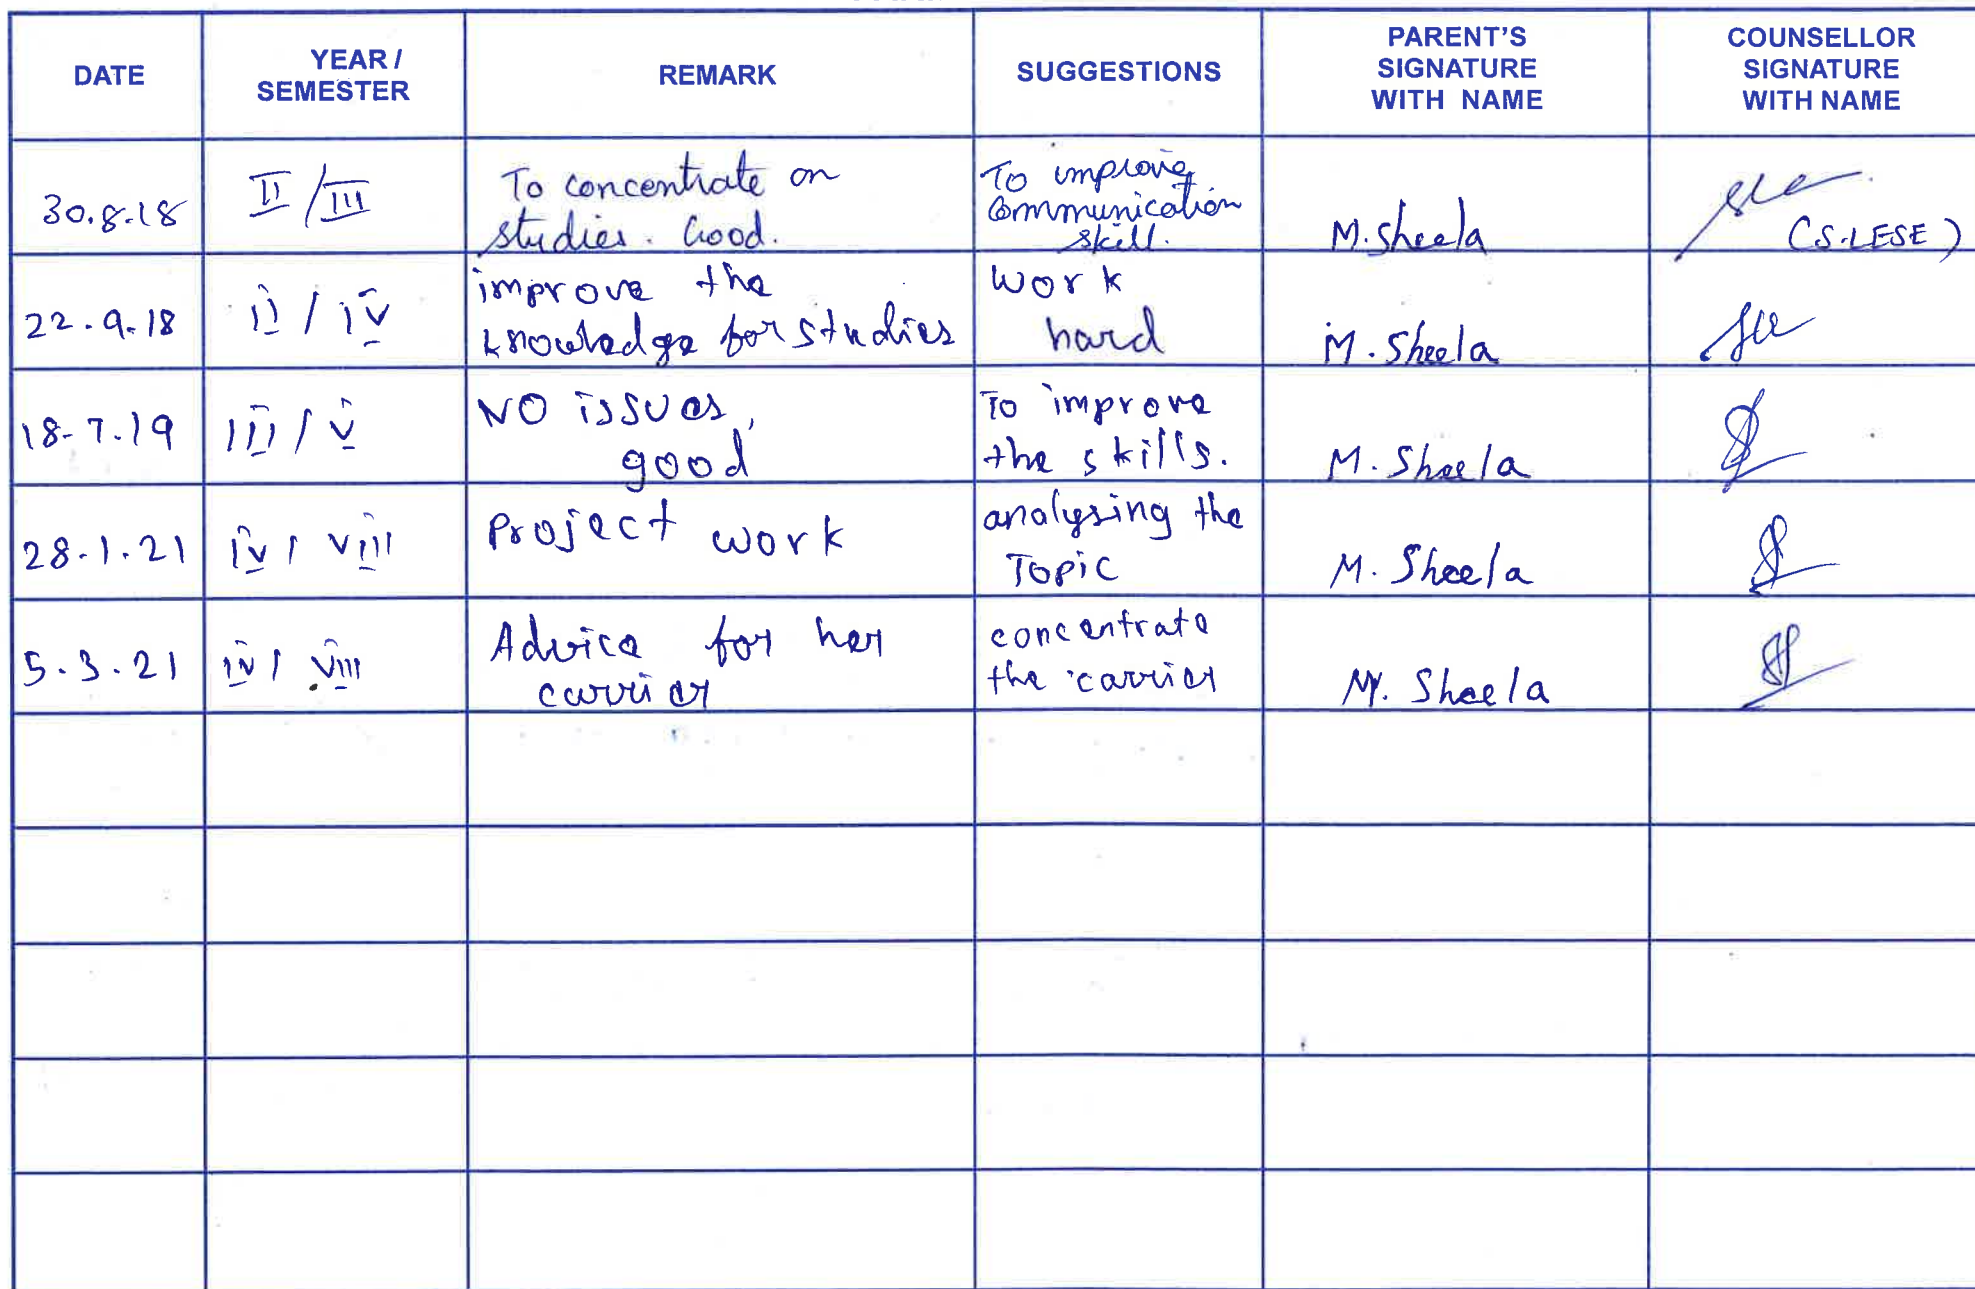 DATE YEAR / SEMESTER REMARK SUGGESTIONS PARENT'S SIGNATURE WITH NAME COUNSELLOR SIGNATURE WITH NAME
30.8.18 II / III To concentrate on To improve
studies. Good. communication
skill. M. Sheela (S.LESE)
22.9.18 II / IV improve the work
knowledge for studies hard M. Sheela
18-7.19 III / V NO issues, To improve
good the skills. M. Sheela
28.1.21 IV / VIII Project work analysing the
Topic M. Sheela
5.3.21 IV / VIII Advice for her concentrate
carrier the carrier M. Sheela